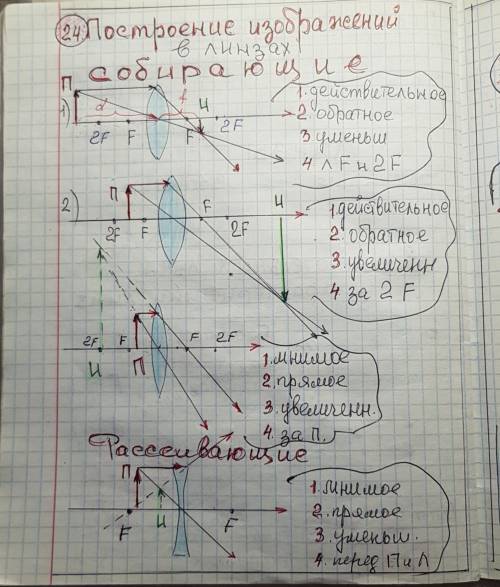 24. Построение изображений
в линзах
собирающие
1)
П
d
f
И
2F
F
F
2F
1. действительное
2. обратное
3 уменьш
4 Л F и 2F
2)
П
2F
F
F
2F
И
1 действительное
2. обратное
3. увеличенн
4 за 2 F
2F
F
F
2F
И
П
1. мнимое
2. прямое
3. увеличенн.
4. за П.
Рассеивающие
П
F
И
F
1. мнимое
2. прямое
3. уменьш.
4. перед П и Л